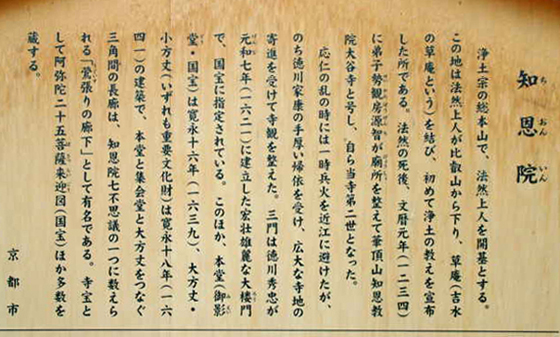 知恩院
ち おん いん
浄土宗の総本山で、法然上人を開基とする。
この地は法然上人が比叡山から下り、草庵(吉水
の草庵という)を結び、初めて浄土の教えを宣布
した所である。法然の死後、文暦元年(一二三四)
に弟子勢観房源智が廟所を整えて華頂山知恩教
院大谷寺と号し、自ら当寺第二世となった。
応仁の乱の時には一時兵火を近江に避けたが、
のち徳川家康の手厚い帰依を受け、広大な寺地の
寄進を受けて寺観を整えた。三門は徳川秀忠が
元和七年(一六二一)に建立した宏壮雄麗な大楼門
で、国宝に指定されている。このほか、本堂(御影
堂・国宝)は寛永十六年(一六三九)、大方丈・
小方丈(いずれも重要文化財)は寛永十八年(一六
四一)の建築で、本堂と集会堂と大方丈をつなぐ
三角間の長廊は、知恩院七不思議の一つに数えら
れる「鴬張りの廊下」として有名である。寺宝と
して阿弥陀二十五菩薩来迎図(国宝)ほか多数を
蔵する。
京都市